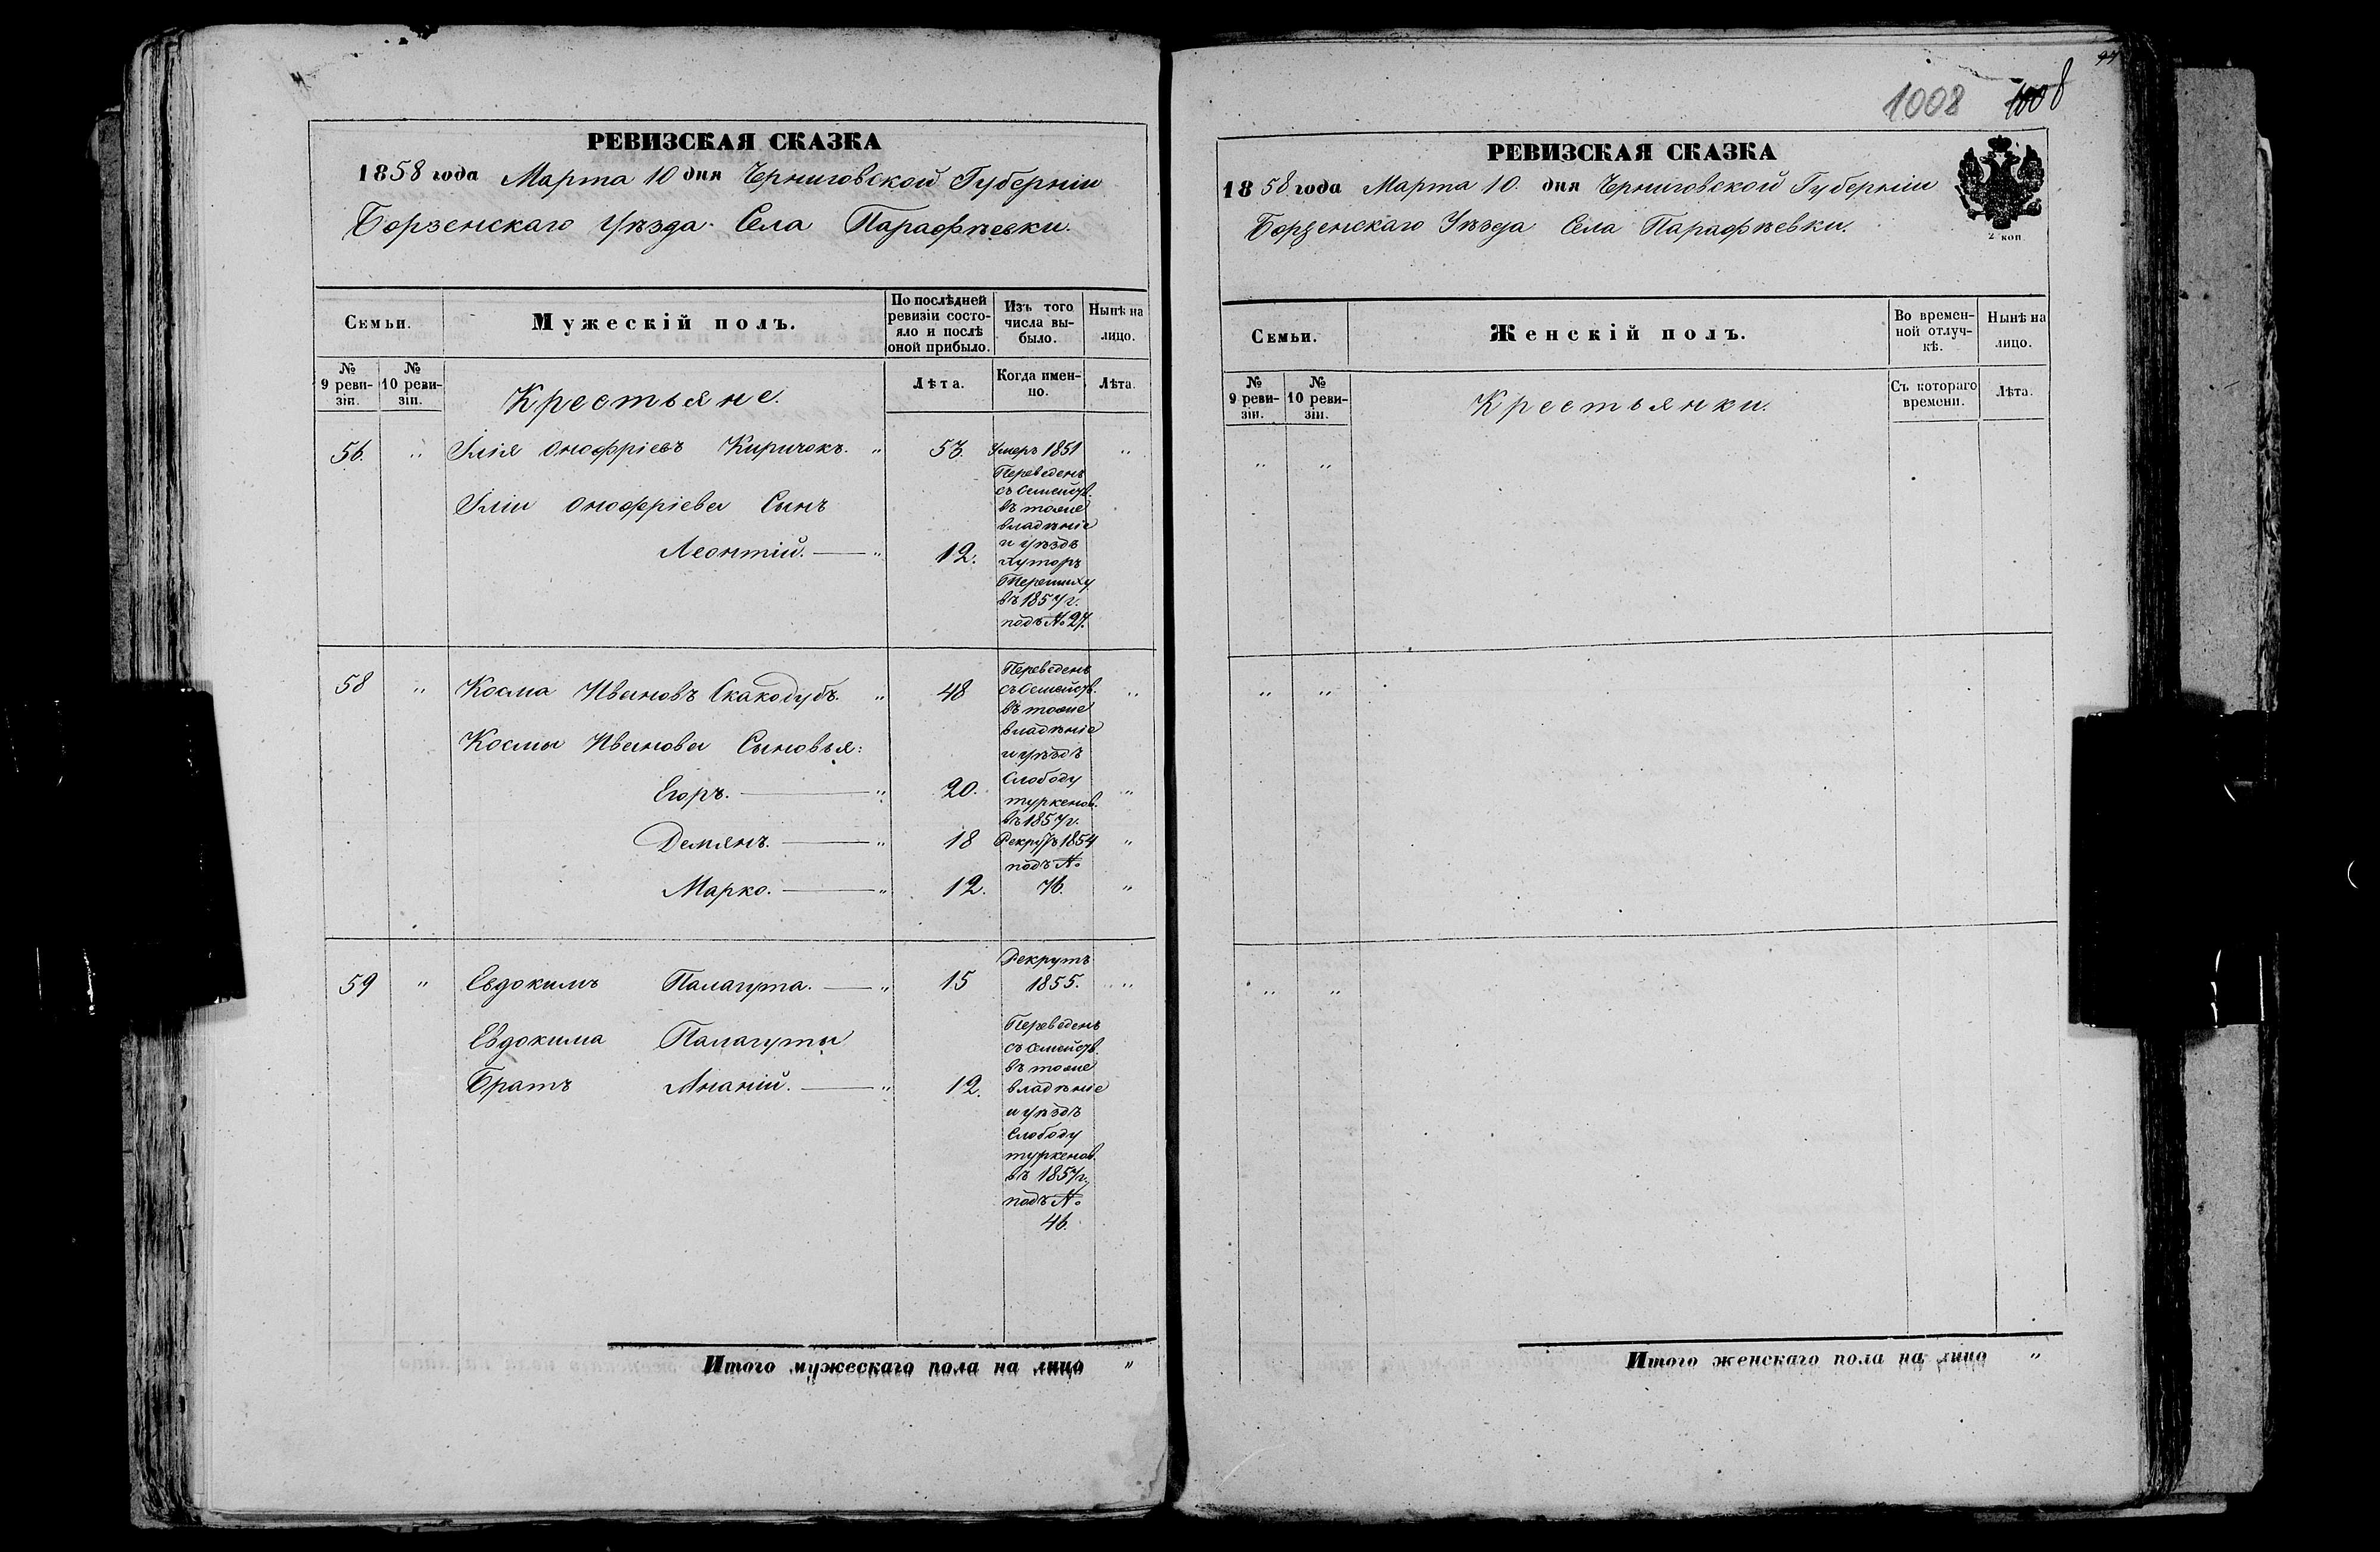 РЕВИЗСКАЯ СКАЗКА
1858 года Марта 10 дня Черниговской Губерніи
Борзенскаго Уѣзда Села Парафѣевки.
Семьи.
Мужескій полъ.
По послѣдней ревизіи состояло и послѣ оной прибыло.
Изъ того числа выбыло.
Нынѣ на лицо.
№ 9 ревизіи.
№ 10 ревизіи.
Крестьяне.
Лѣта.
Когда именно.
Лѣта.
56. " Илія Онофріевъ Киричокъ. " 53. Умеръ 1851 "
Переведенъ
съ семейств.
Иліи Онофріева Сынъ
въ тоже
владѣніе
Леонтій. — " 12. и уѣздъ
хуторъ
въ 1857 г.
подъ № 27.
58 " Косма Ивановъ Скакодубъ. " 48 Переведенъ
съ семейств. "
въ тоже
Космы Иванова Сыновья:
владѣніе
и уѣздъ
Егоръ. — " 20. Слободу "
туркенов.
въ 1857 г.
Демянъ. — " 18 Рекрутъ 1854 "
подъ №
Марко. — " 12. 76. "
59 " Евдокимъ Палагута. — " 15 Рекрутъ
1855. "
Евдокима Палагуты
Переведенъ
съ семейств.
въ тоже
Братъ Ананій. — " 12. владѣніе
и уѣздъ
Слободу
туркенов.
въ 1857 г.
подъ №
46.
Итого мужескаго пола на лицо "
1008 1008
РЕВИЗСКАЯ СКАЗКА
1858 года Марта 10. дня Черниговской Губерніи
Борзенскаго Уѣзда Села Парафѣевки.
2 коп.
Семьи.
Женскій полъ.
Во временной отлучкѣ.
Нынѣ на лицо.
№ 9 ревизіи.
№ 10 ревизіи.
Крестьянки.
Съ котораго времени.
Лѣта.
" "
" "
" "
Итого женскаго пола на лицо "